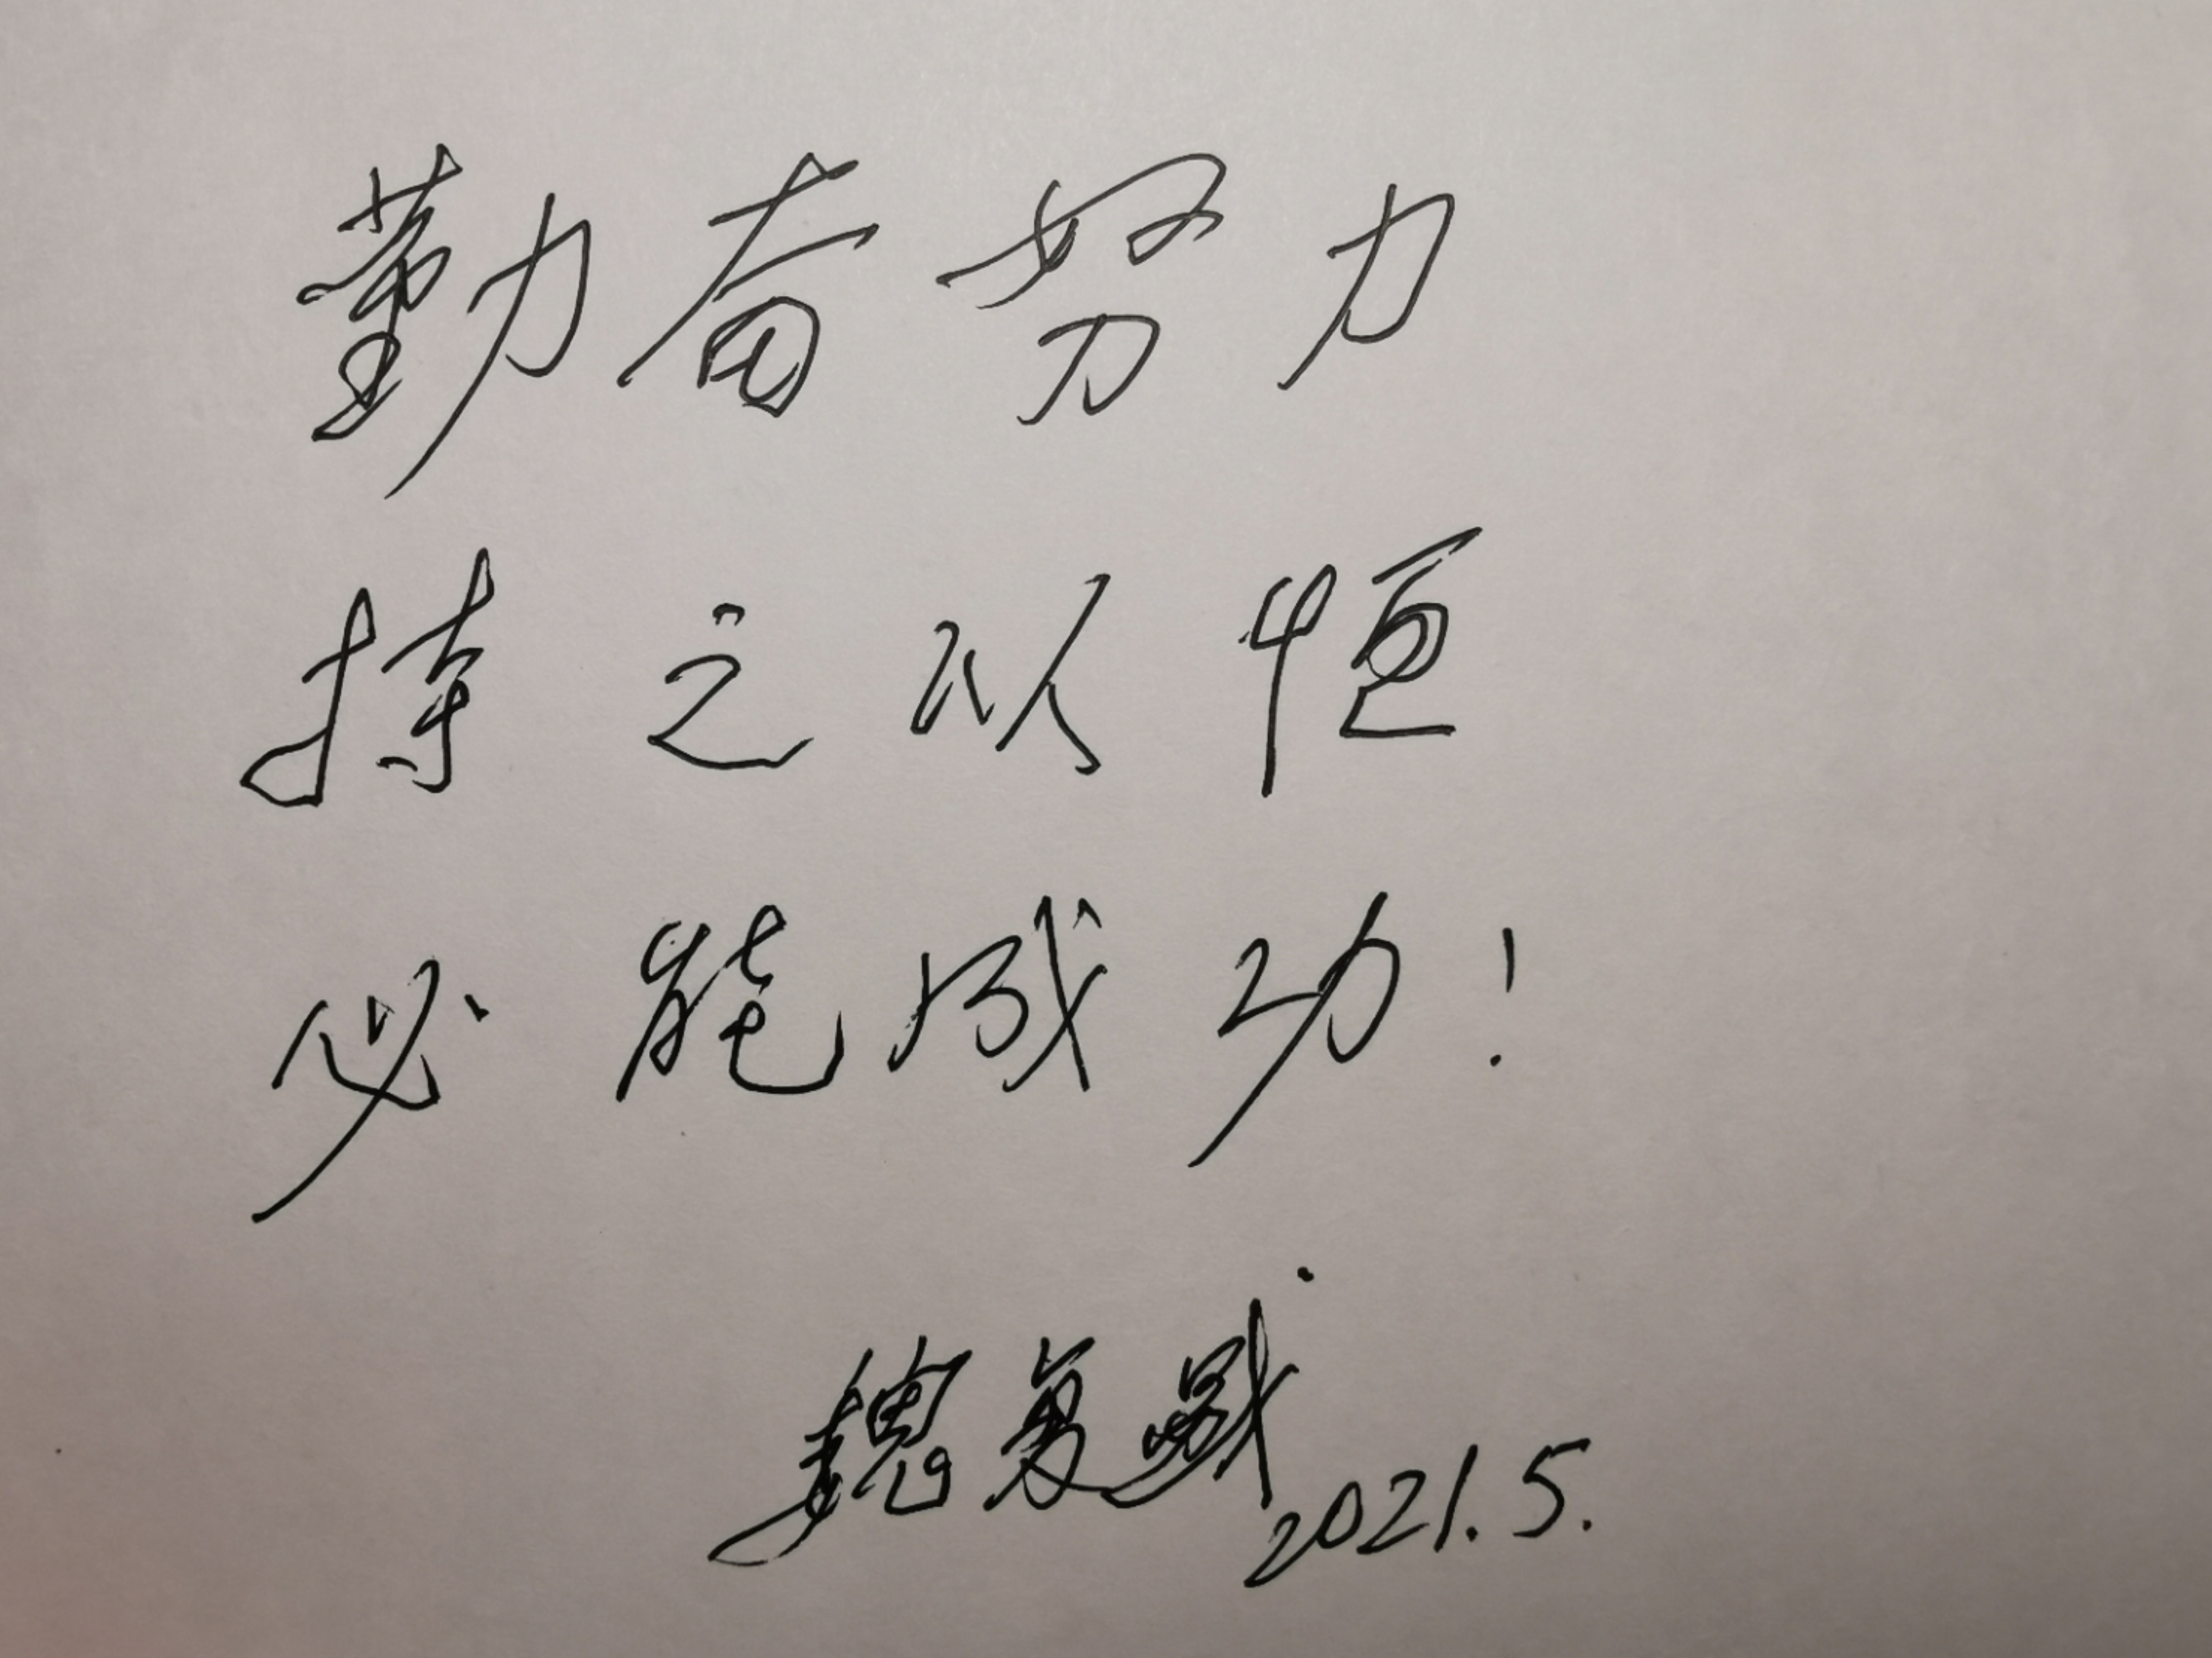 勤奋努力
持之以恒
必能成功!
魏复盛
2021.5.